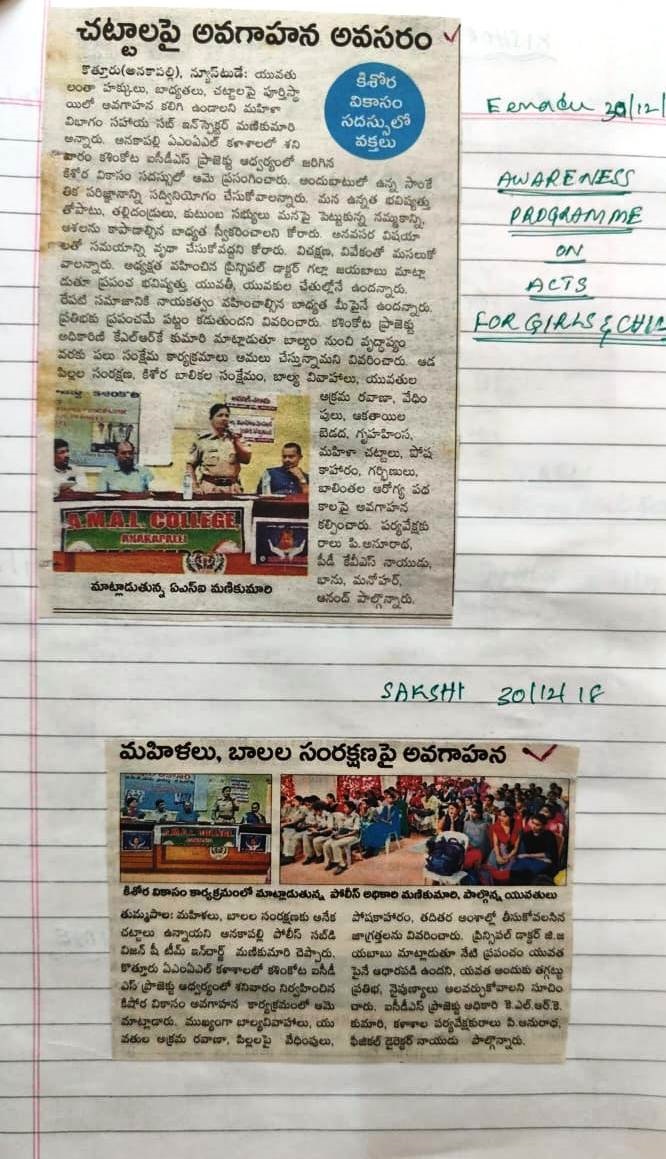 చట్టాలపై అవగాహన అవసరం
కొత్తూరు(అనకాపల్లి), న్యూస్‌టుడే: యువతు
లంతా హక్కులు, బాధ్యతలు, చట్టాలపై పూర్తిస్థా
యిలో అవగాహన కలిగి ఉండాలని మహిళా
విభాగం సహాయ సబ్ ఇన్‌స్పెక్టర్ మణికుమారి
అన్నారు. అనకాపల్లి ఏఎంఏఎల్ కళాశాలలో శని
వారం కశింకోట ఐసీడీఎస్ ప్రాజెక్టు ఆధ్వర్యంలో జరిగిన
కిశోర వికాసం సదస్సులో ఆమె ప్రసంగించారు. అందుబాటులో ఉన్న సాంకే
తిక పరిజ్ఞానాన్ని సద్వినియోగం చేసుకోవాలన్నారు. మన ఉన్నత భవిష్యత్తు
తోపాటు, తల్లిదండ్రులు, కుటుంబ సభ్యులు మనపై పెట్టుకున్న నమ్మకాన్ని,
ఆశలను కాపాడాల్సిన బాధ్యత స్వీకరించాలని కోరారు. అనవసర విషయా
లతో సమయాన్ని వృథా చేసుకోవద్దని కోరారు. విచక్షణ, వివేకంతో మసలుకో
వాలన్నారు. అధ్యక్షత వహించిన ప్రిన్సిపల్ డాక్టర్ గల్లా జయబాబు మాట్లా
డుతూ ప్రపంచ భవిష్యత్తు యువతీ, యువకుల చేతుల్లోనే ఉందన్నారు.
రేపటి సమాజానికి నాయకత్వం వహించాల్సిన బాధ్యత మీపైనే ఉందన్నారు.
ప్రతిభకు ప్రపంచమే పట్టం కడుతుందని వివరించారు. కశింకోట ప్రాజెక్టు
అధికారిణి కేఎల్ఆర్‌కే కుమారి మాట్లాడుతూ బాల్యం నుంచి వృద్ధాప్యం
వరకు పలు సంక్షేమ కార్యక్రమాలు అమలు చేస్తున్నామని వివరించారు. ఆడ
పిల్లల సంరక్షణ, కిశోర బాలికల సంక్షేమం, బాల్య వివాహాలు, యువతుల
అక్రమ రవాణా, వేధిం
పులు, ఆకతాయిల
బెడద, గృహహింస,
మహిళా చట్టాలు, పోష
కాహారం, గర్భిణులు,
బాలింతల ఆరోగ్య పథ
కాలపై అవగాహన
కల్పించారు. పర్యవేక్షకు
రాలు పి.అనూరాధ,
పీడీ కేవీఎస్ నాయుడు,
భాను, మనోహర్,
ఆనంద్ పాల్గొన్నారు.
కిశోర
వికాసం
సదస్సులో
వక్తలు
A.M.A.L. COLLEGE
ANAKAPALLI
మాట్లాడుతున్న ఏఎస్ఐ మణికుమారి
Eenadu 30/12/
AWARENESS
PROGRAMME
ON
ACTS
FOR GIRLS & CHIL
SAKSHI 30/12/18
మహిళలు, బాలల సంరక్షణపై అవగాహన
A.M.A.L. COLLEGE
కిశోర వికాసం కార్యక్రమంలో మాట్లాడుతున్న పోలీస్ అధికారి మణికుమారి, పాల్గొన్న యువతులు
తుమ్మపాల: మహిళలు, బాలల సంరక్షణకు అనేక
చట్టాలు ఉన్నాయని అనకాపల్లి పోలీస్ సబ్‌డి
విజన్ షీ టీమ్ ఇన్‌చార్జ్ మణికుమారి చెప్పారు.
కొత్తూరు ఏఎంఏఎల్ కళాశాలలో కశింకోట ఐసీడీ
ఎస్ ప్రాజెక్టు ఆధ్వర్యంలో శనివారం నిర్వహించిన
కిషోర వికాసం అవగాహన కార్యక్రమంలో ఆమె
మాట్లాడారు. ముఖ్యంగా బాల్యవివాహాలు, యు
వతుల అక్రమ రవాణా, పిల్లలపై వేధింపులు,
పోషకాహారం, తదితర అంశాల్లో తీసుకోవలసిన
జాగ్రత్తలను వివరించారు. ప్రిన్సిపల్ డాక్టర్ జి.జ
యబాబు మాట్లాడుతూ నేటి ప్రపంచం యువత
పైనే ఆధారపడి ఉందని, యువత అందుకు తగ్గట్టు
ప్రతిభ, నైపుణ్యాలు అలవర్చుకోవాలని సూచిం
చారు. ఐసీడీఎస్ ప్రాజెక్టు అధికారి కె.ఎల్.ఆర్.కె.
కుమారి, కళాశాల పర్యవేక్షకురాలు పి.అనురాధ,
ఫిజికల్ డైరెక్టర్ నాయుడు పాల్గొన్నారు.